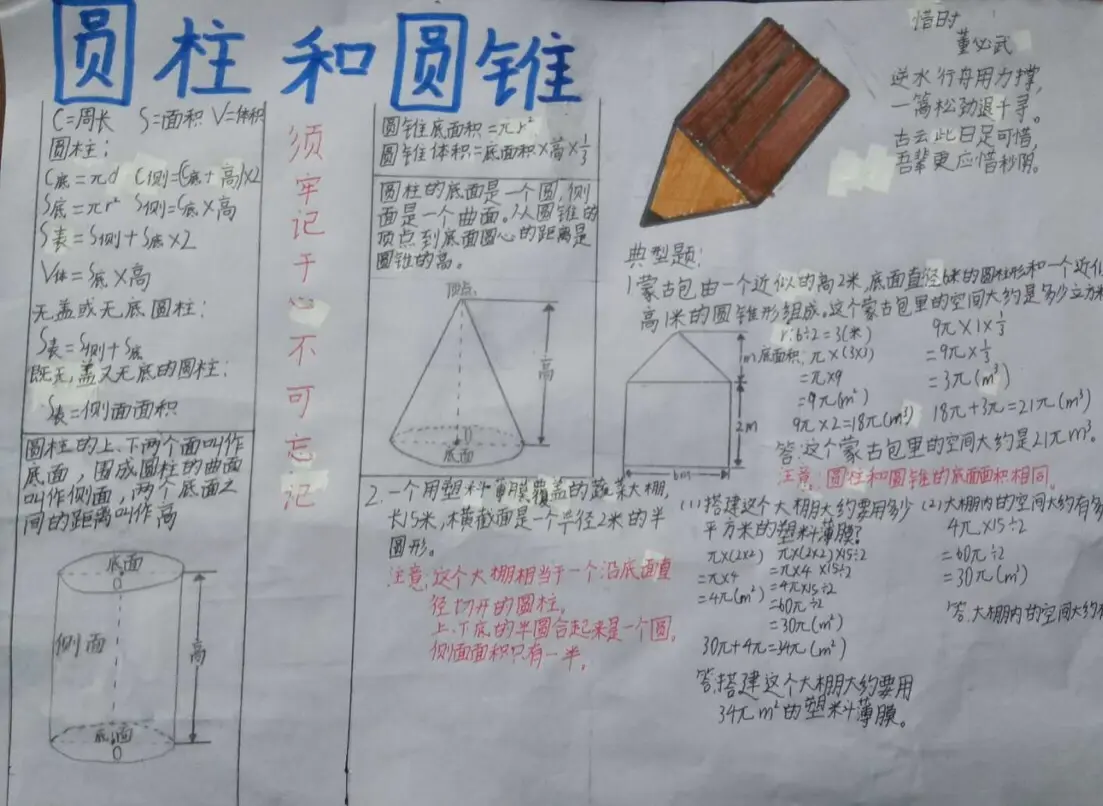 圆柱和圆锥
C=周长 S=面积 V=体积
圆柱：
C底=πd C侧=(C底+高)×2
S底=πr² S侧=C底×高
S表=S侧+S底×2
V体=S底×高
无盖或无底圆柱：
S表=S侧+S底
既无盖又无底的圆柱：
S表=侧面面积
圆柱的上、下两个面叫作
底面，围成圆柱的曲面
叫作侧面，两个底面之
间的距离叫作高
底面
O
侧面
高
底面
O
须牢记于心不可忘记
圆锥底面积=πr²
圆锥体积=底面积×高×1/3
圆柱的底面是一个圆，侧
面是一个曲面。从圆锥的
顶点到底面圆心的距离是
圆锥的高。
顶点
高
O
底面
惜时
董必武
逆水行舟用力撑，
一篙松劲退千寻。
古云此日足可惜，
吾辈更应惜秒阴。
典型题：
1蒙古包由一个近似的高2米，底面直径6米的圆柱形和一个近似
高1米的圆锥形组成。这个蒙古包里的空间大约是多少立方米
m
2m
6m
r:6÷2=3(米)
底面积：π×(3×3)
=π×9
=9π(m²)
9π×2=18π(m³)
9π×1×1/3
=9π×1/3
=3π(m³)
18π+3π=21π(m³)
答：这个蒙古包里的空间大约是21πm³。
注意：圆柱和圆锥的底面面积相同。
2.一个用塑料薄膜覆盖的蔬菜大棚，
长15米，横截面是一个半径2米的半
圆形。
注意：这个大棚相当于一个沿底面直
径切开的圆柱。
上、下底的半圆合起来是一个圆。
侧面面积只有一半。
(1)搭建这个大棚大约要用多少
平方米的塑料薄膜?
π×(2×2)
=π×4
=4π(m²)
π×(2×2)×15÷2
=π×4×15÷2
=4π×15÷2
=60π÷2
=30π(m²)
30π+4π=34π(m²)
答：搭建这个大棚大约要用
34πm²的塑料薄膜。
(2)大棚内的空间大约有多
4π×15÷2
=60π÷2
=30π(m³)
答：大棚内的空间大约